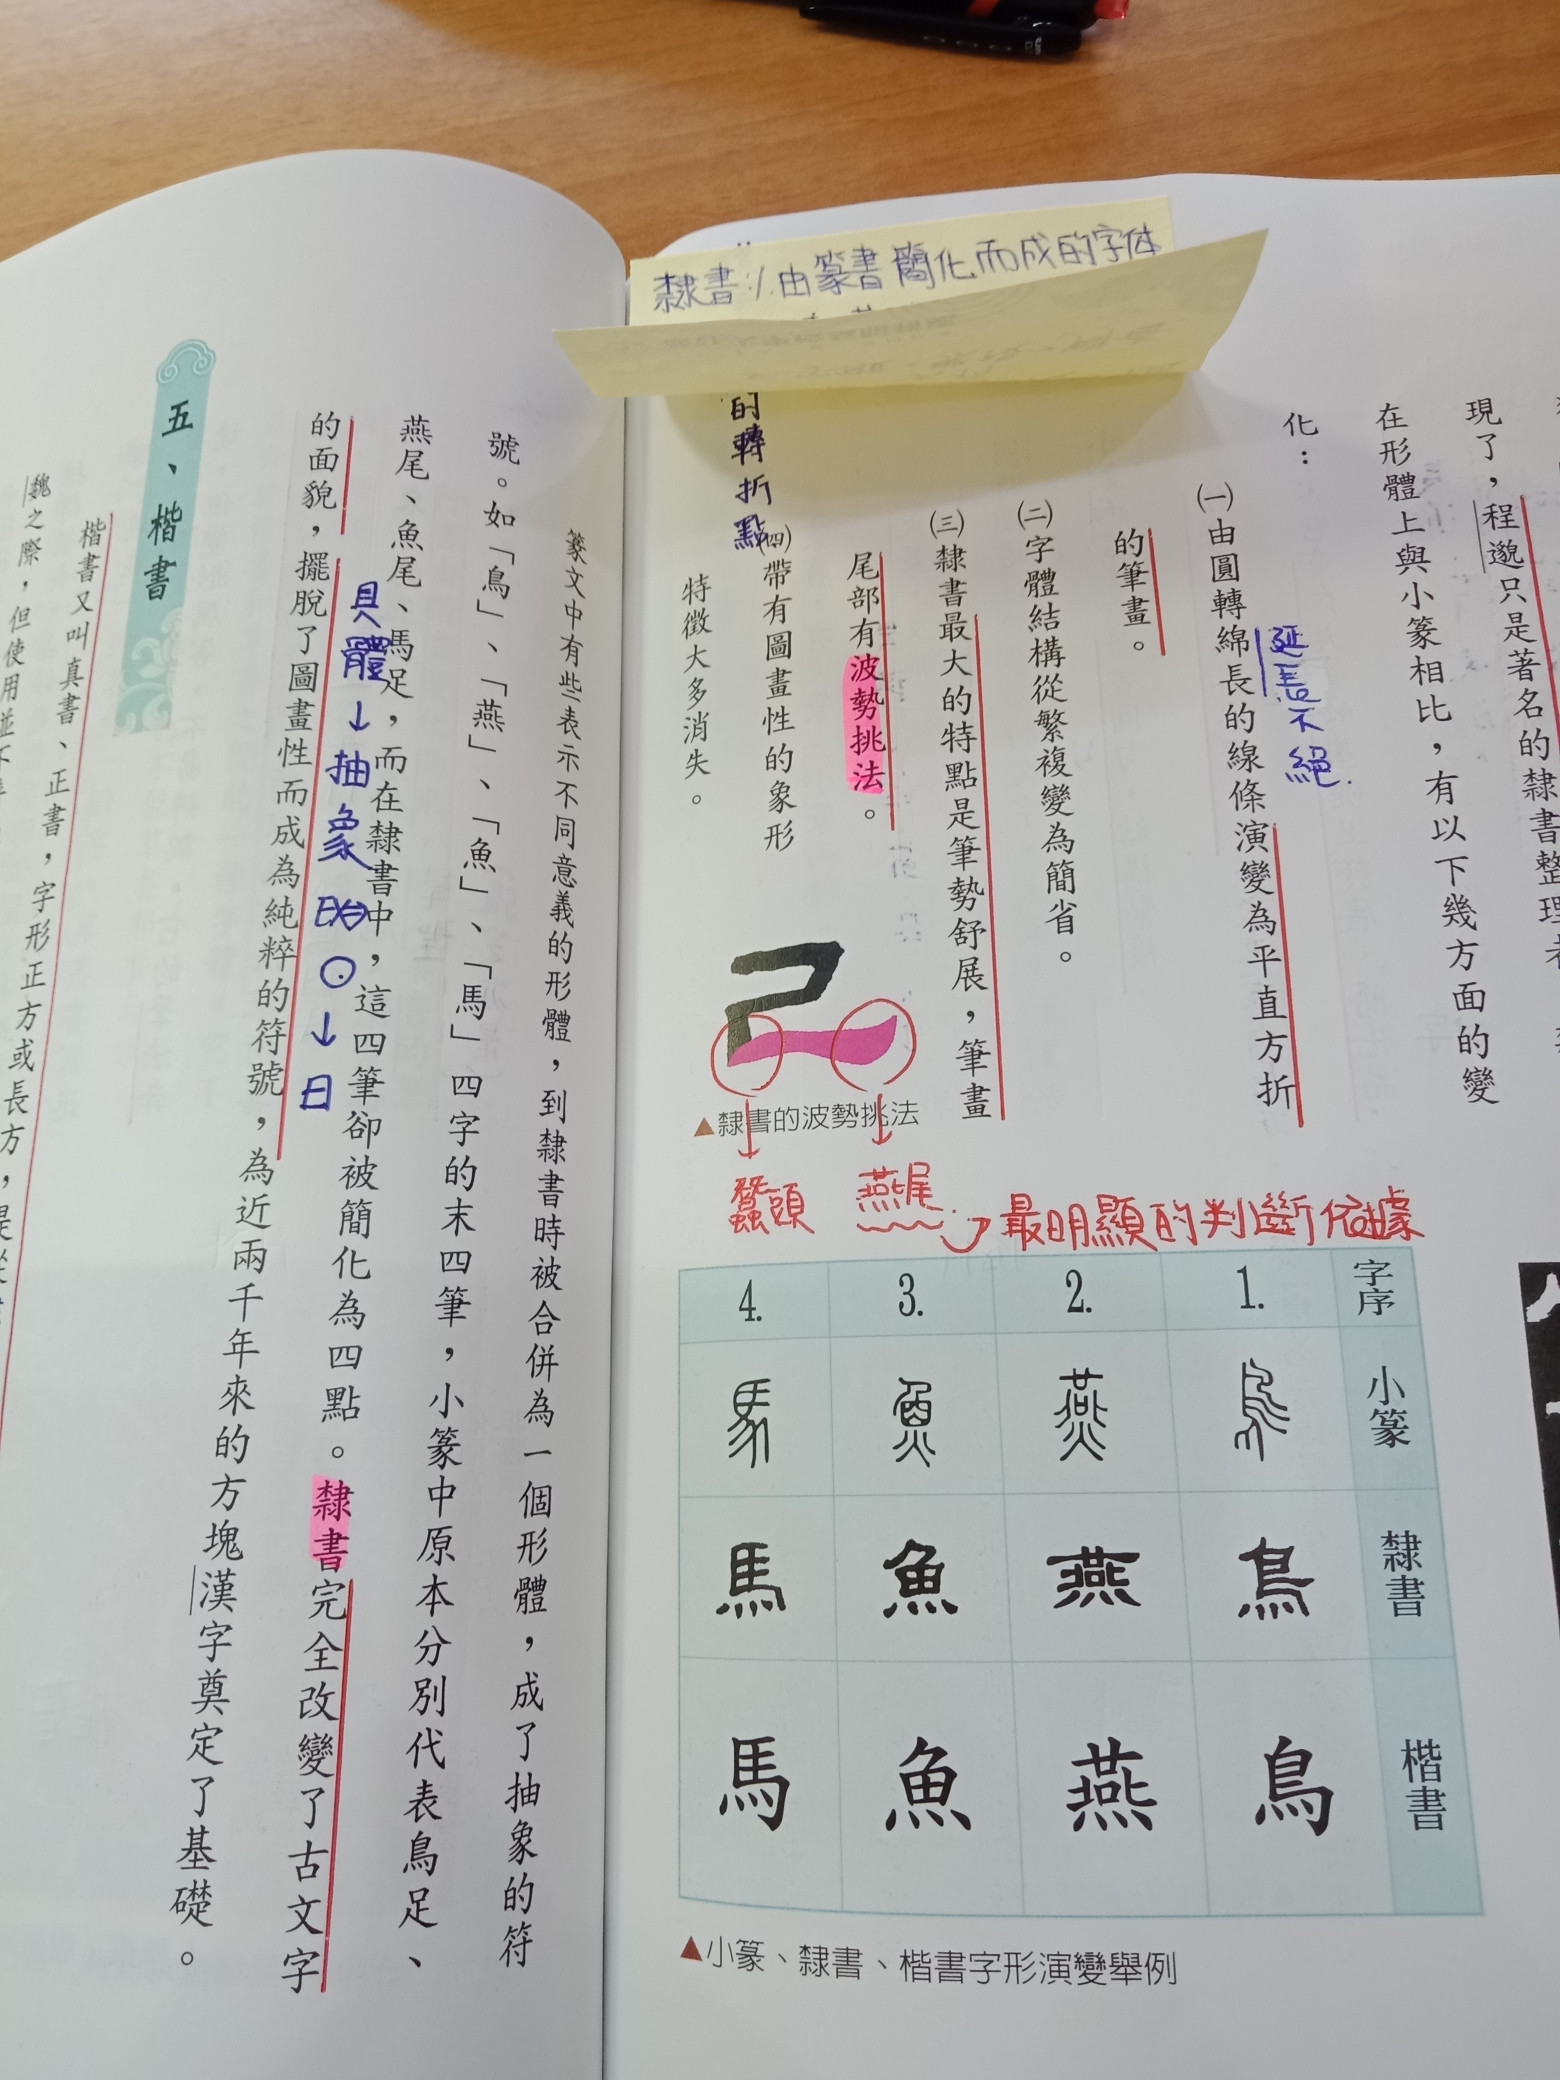 隸書：由篆書簡化而成的字体
的轉折點
現了，程邈只是著名的隸書整理者
在形體上與小篆相比，有以下幾方面的變
化：
㈠由圓轉綿長的線條演變為平直方折
延長不絕.
的筆畫。
㈡字體結構從繁複變為簡省。
㈢隸書最大的特點是筆勢舒展，筆畫
尾部有波勢挑法。
㈣帶有圖畫性的象形
特徵大多消失。
▲隸書的波勢挑法
蠶頭
燕尾
最明顯的判斷依據
字序 1. 2. 3. 4.
小篆 鳥 燕 魚 馬
隸書 鳥 燕 魚 馬
楷書 鳥 燕 魚 馬
▲小篆、隸書、楷書字形演變舉例
篆文中有些表示不同意義的形體，到隸書時被合併為一個形體，成了抽象的符
號。如「鳥」、「燕」、「魚」、「馬」四字的末四筆，小篆中原本分別代表鳥足、
燕尾、魚尾、馬足，而在隸書中，這四筆卻被簡化為四點。隸書完全改變了古文字
具體↓抽象
⊙↓日
的面貌，擺脫了圖畫性而成為純粹的符號，為近兩千年來的方塊漢字奠定了基礎。
五、楷書
楷書又叫真書、正書，字形正方或長方，
魏之際，但使用並不